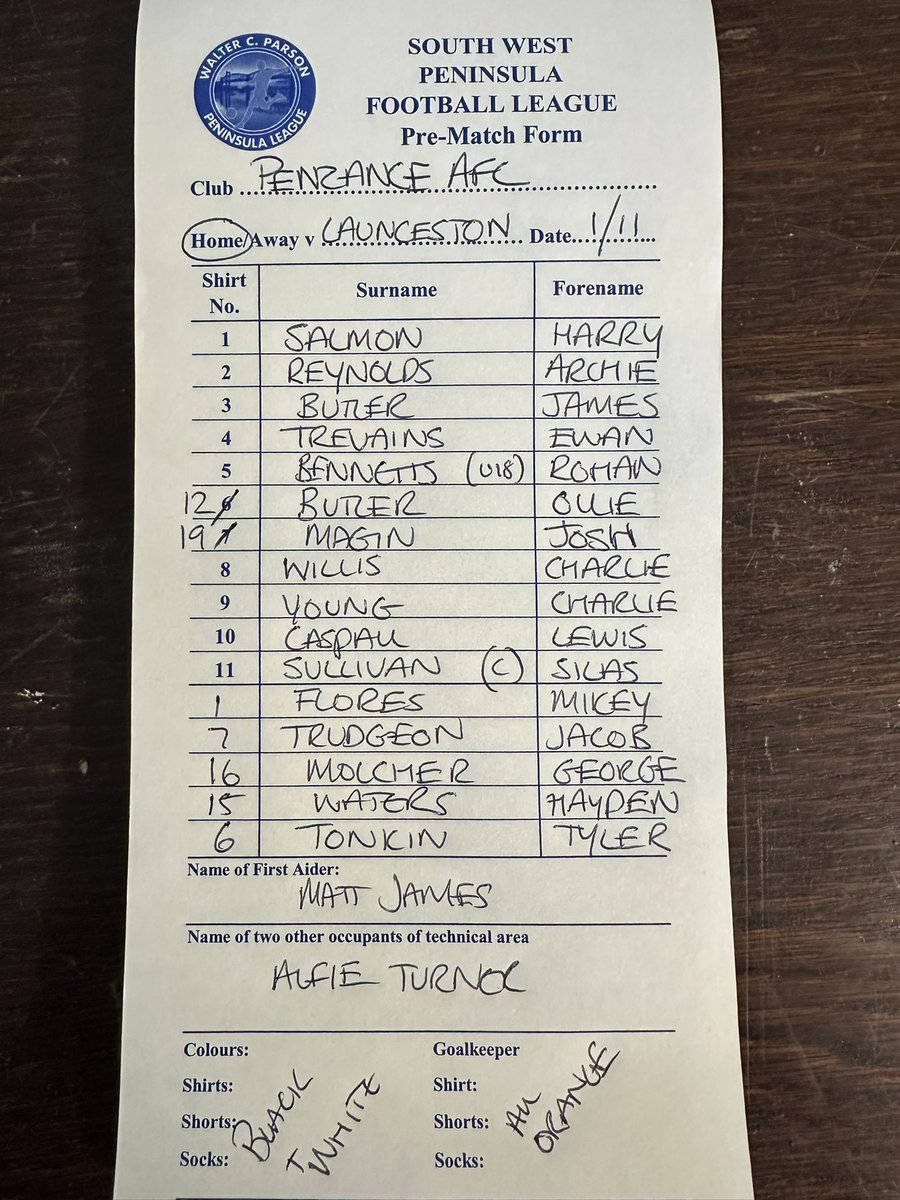 WALTER C. PARSON
PENINSULA LEAGUE
SOUTH WEST
PENINSULA
FOOTBALL LEAGUE
Pre-Match Form
Club PENZANCE AFC
Home/Away v LAUNCESTON Date 1/11
Shirt No. Surname Forename
1 SALMON HARRY
2 REYNOLDS ARCHIE
3 BUTLER JAMES
4 TREVAINS EWAN
5 BENNETTS (U18) ROMAN
12 6 BUTLER OLLIE
19 7 MAGIN JOSH
8 WILLIS CHARLIE
9 YOUNG CHARLIE
10 CASPALL LEWIS
11 SULLIVAN (C) SILAS
1 FLORES MIKEY
7 TRUDGEON JACOB
16 MOLCHER GEORGE
15 WATERS HAYDEN
6 TONKIN TYLER
Name of First Aider:
MATT JAMES
Name of two other occupants of technical area
ALFIE
Colours: Goalkeeper
Shirts: Shirt:
Shorts: Shorts:
Socks: Socks:
BLACK
+ WHITE
ALL
ORANGE